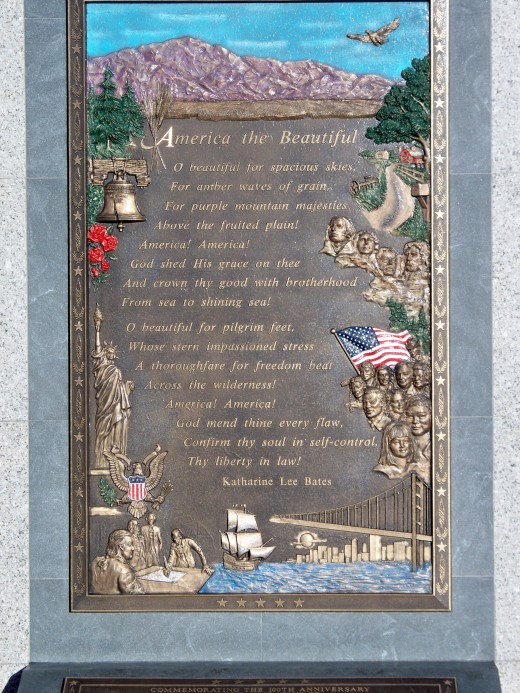 America the Beautiful
O beautiful for spacious skies,
For amber waves of grain,
For purple mountain majesties
Above the fruited plain!
America! America!
God shed His grace on thee
And crown thy good with brotherhood
From sea to shining sea!
O beautiful for pilgrim feet,
Whose stern impassioned stress
A thoroughfare for freedom beat
Across the wilderness!
America! America!
God mend thine every flaw,
Confirm thy soul in self-control,
Thy liberty in law!
Katharine Lee Bates
COMMEMORATING THE 100TH ANNIVERSARY